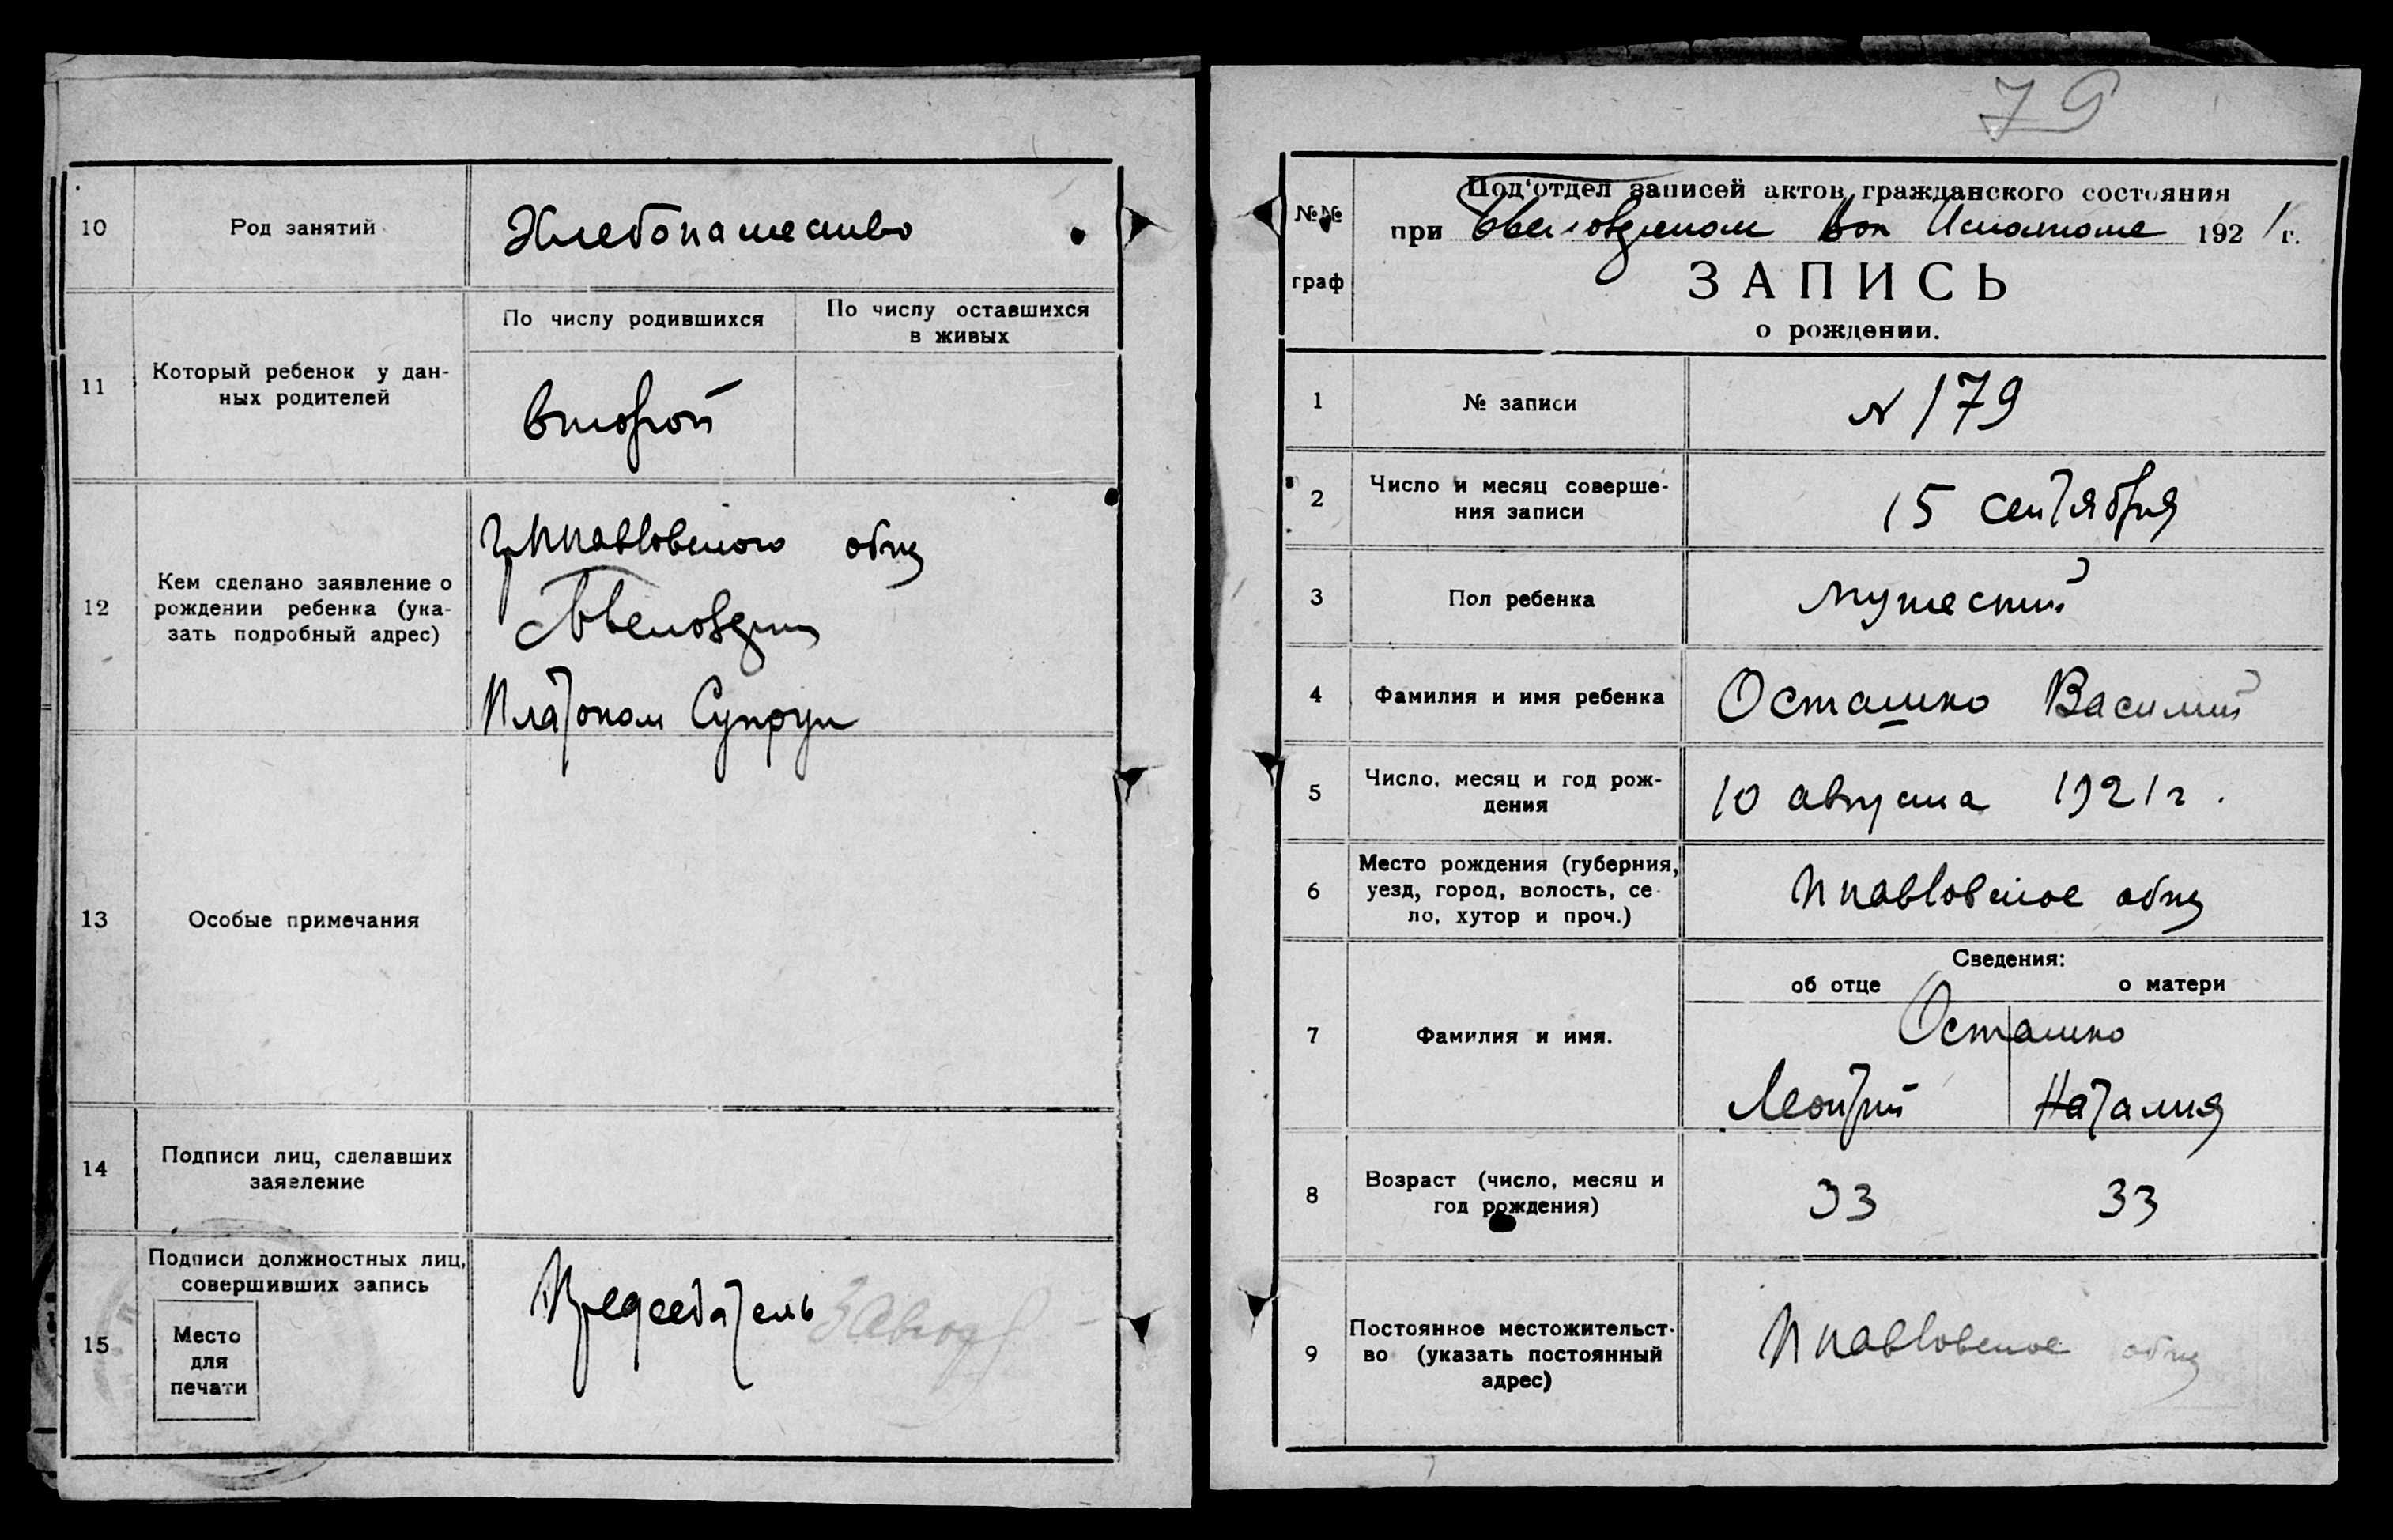 10
Род занятий
Хлебопашество
11
Который ребенок у дан-
ных родителей
По числу родившихся
По числу оставшихся
в живых
второй
12
Кем сделано заявление о
рождении ребенка (ука-
зать подробный адрес)
обще
Платоном Супрун
13
Особые примечания
14
Подписи лиц, сделавших
заявление
15
Подписи должностных лиц,
совершивших запись
Место
для
печати
Председатель
79
№№
граф
Под'отдел записей актов гражданского состояния
при Вол Исполкоме 1921 г.
ЗАПИСЬ
о рождении.
1
№ записи
N 179
2
Число и месяц соверше-
ния записи
15 сентября
3
Пол ребенка
Мужеский
4
Фамилия и имя ребенка
Осташко Василий
5
Число, месяц и год рож-
дения
10 августа 1921 г.
6
Место рождения (губерния,
уезд, город, волость, се
ло, хутор и проч.)
обще
Сведения:
об отце
о матери
7
Фамилия и имя.
Осташко
Леонтий
Наталия
8
Возраст (число, месяц и
год рождения)
33
33
9
Постоянное местожительст-
во (указать постоянный
адрес)
обще